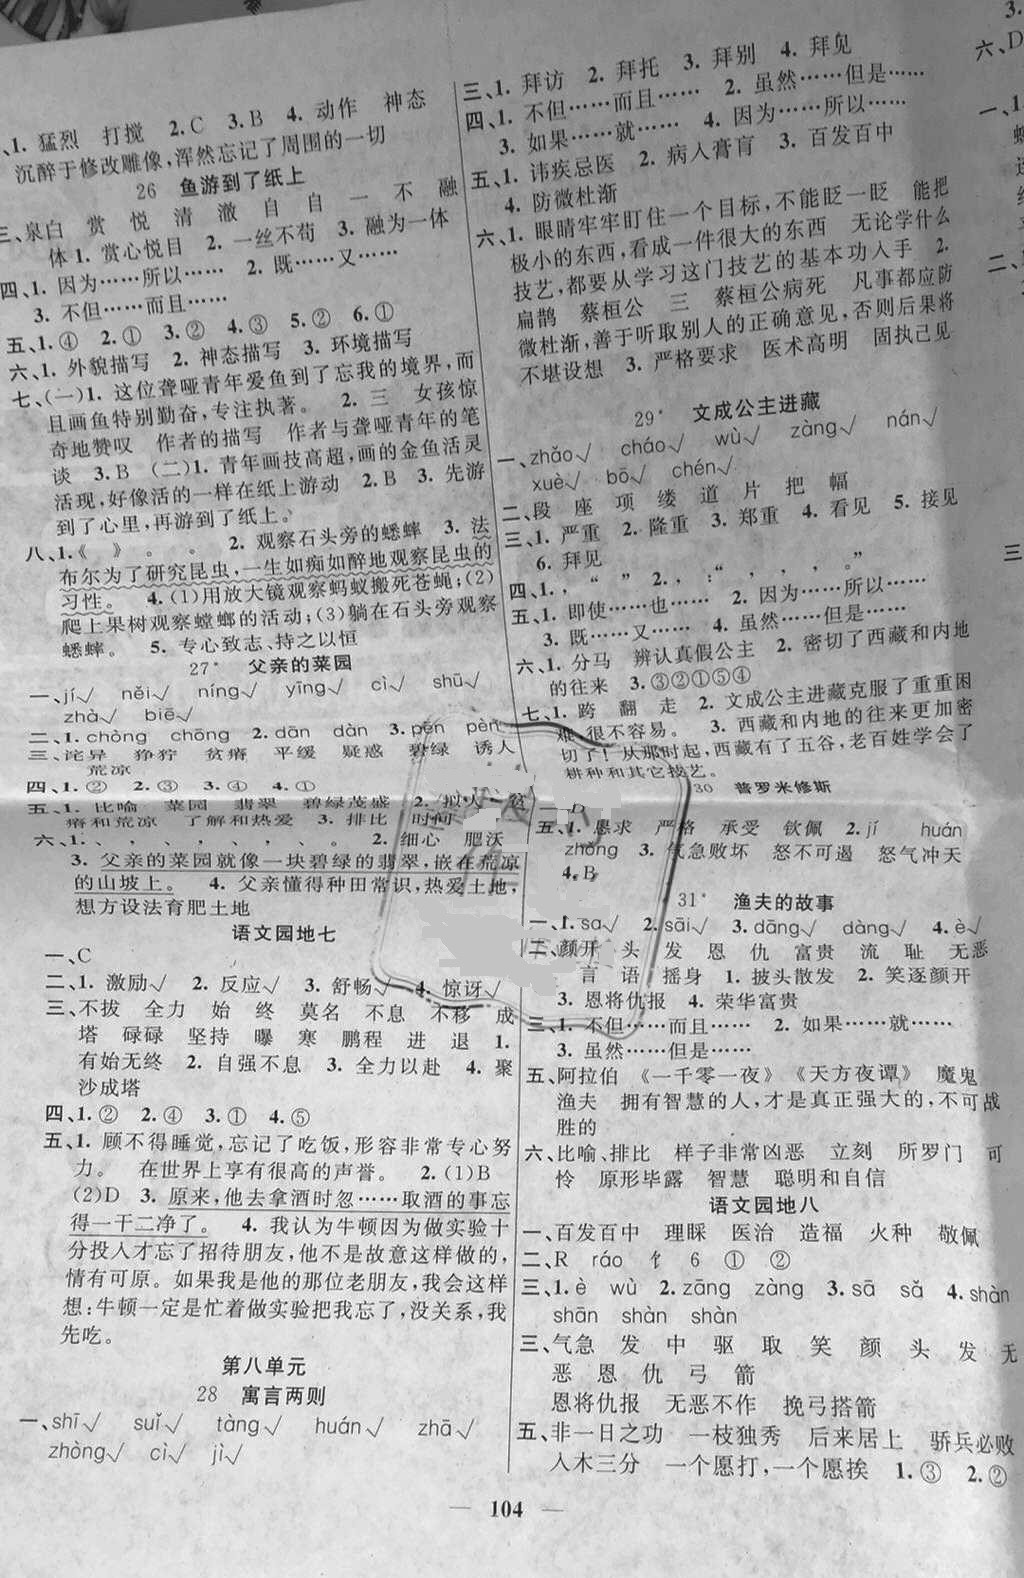 、1. 猛烈 打搅 2.C 3.B 4. 动作 神态
沉醉于修改雕像,浑然忘记了周围的一切
26 鱼游到了纸上
三、泉白 赏 悦 清 澈 自 自 一 不 融
体 1. 赏心悦目 2. 一丝不苟 3. 融为一体
四、1. 因为……所以…… 2. 既……又……
3. 不但……而且……
五、1.④ 2.① 3.② 4.③ 5.② 6.①
六、1. 外貌描写 2. 神态描写 3. 环境描写
七、(一)1. 这位聋哑青年爱鱼到了忘我的境界,而
且画鱼特别勤奋,专注执著。 2. 三 女孩惊
奇地赞叹 作者的描写 作者与聋哑青年的笔
谈 3.B (二)1. 青年画技高超,画的金鱼活灵
活现,好像活的一样在纸上游动 2.B 3. 先游
到了心里,再游到了纸上。
八、1.《 》 。 。 2. 观察石头旁的蟋蟀 3. 法
布尔为了研究昆虫,一生如痴如醉地观察昆虫的
习性。 4.(1)用放大镜观察蚂蚁搬死苍蝇;(2)
爬上果树观察螳螂的活动;(3)躺在石头旁观察
蟋蟀。 5. 专心致志、持之以恒
27* 父亲的菜园
一、jí√ něi√ níng√ yīng√ cì√ shū√
zhà√ biē√
二、1. chòng chōng 2. dān dàn 3. pēn pèn
三、诧异 狰狞 贫瘠 平缓 疑惑 碧绿 诱人
荒凉
四、1.② 2.③ 3.④ 4.①
五、1. 比喻 菜园 翡翠 碧绿茂盛 2. 拟人 贫
瘠和荒凉 了解和热爱 3. 排比 时间
六、1.、 、 、 、 、 。 2. 细心 肥沃
3. 父亲的菜园就像一块碧绿的翡翠,嵌在荒凉
的山坡上。 4. 父亲懂得种田常识,热爱土地,
想方设法育肥土地
语文园地七
一、C
二、1. 激励√ 2. 反应√ 3. 舒畅√ 4. 惊讶√
三、不拔 全力 始 终 莫名 不息 不移 成
塔 碌碌 坚持 曝 寒 鹏程 进 退 1.
有始无终 2. 自强不息 3. 全力以赴 4. 聚
沙成塔
四、1.② 2.④ 3.① 4.⑤
五、1. 顾不得睡觉,忘记了吃饭,形容非常专心努
力。 在世界上享有很高的声誉。 2.(1)B
(2)D 3. 原来,他去拿酒时忽……取酒的事忘
得一干二净了。 4. 我认为牛顿因为做实验十
分投入才忘了招待朋友,他不是故意这样做的,
情有可原。如果我是他的那位老朋友,我会这样
想:牛顿一定是忙着做实验把我忘了,没关系,我
先吃。
第八单元
28 寓言两则
一、shī√ suǐ√ tàng√ huán√ zhā√
zhòng√ cì√ jì√
三、1. 拜访 2. 拜托 3. 拜别 4. 拜见
四、1. 不但……而且…… 2. 虽然……但是……
3. 如果……就…… 4. 因为……所以……
五、1. 讳疾忌医 2. 病入膏肓 3. 百发百中
4. 防微杜渐
六、1. 眼睛牢牢盯住一个目标,不能眨一眨 能把
极小的东西,看成一件很大的东西 无论学什么
技艺,都要从学习这门技艺的基本功入手 2.
扁鹊 蔡桓公 三 蔡桓公病死 凡事都应防
微杜渐,善于听取别人的正确意见,否则后果将
不堪设想 3. 严格要求 医术高明 固执己见
29* 文成公主进藏
一、zhǎo√ cháo√ wù√ zàng√ nán√
xuè√ bō√ chén√
二、段 座 项 缕 道 片 把 幅
三、1. 严重 2. 隆重 3. 郑重 4. 看见 5. 接见
6. 拜见
四、1. , “ ” 2. , :“ , , , 。”
五、1. 即使……也…… 2. 因为……所以……
3. 既……又…… 4. 虽然……但是……
六、1. 分马 辨认真假公主 2. 密切了西藏和内地
的往来 3.③②①⑤④
七、1. 跨 翻 走 2. 文成公主进藏克服了重重困
难,很不容易。 3. 西藏和内地的往来更加密
切了!从那时起,西藏有了五谷,老百姓学会了
耕种和其它技艺。
30 普罗米修斯
一、D
五、1. 恳求 严格 承受 钦佩 2. jí huán
zhōng 3. 气急败坏 怒不可遏 怒气冲天
4.B
31* 渔夫的故事
一、1. sa√ 2. sāi√ 3. dāng√ dàng√ 4. è√
二、颜开 头 发 恩 仇 富贵 流 耻 无恶
言 语 摇身 1. 披头散发 2. 笑逐颜开
3. 恩将仇报 4. 荣华富贵
三、1. 不但……而且…… 2. 如果……就……
3. 虽然……但是……
五、阿拉伯 《一千零一夜》 《天方夜谭》 魔鬼
渔夫 拥有智慧的人,才是真正强大的,不可战
胜的
六、比喻、排比 样子非常凶恶 立刻 所罗门 可
怜 原形毕露 智慧 聪明和自信
语文园地八
一、百发百中 理睬 医治 造福 火种 敬佩
二、R ráo 饣 6 ① ②
三、1. è wù 2. zāng zàng 3. sā sǎ 4. shàn
shān shàn shàn
三、气急 发 中 驱 取 笑 颜 头 发 无
恶 恩 仇 弓 箭
恩将仇报 无恶不作 挽弓搭箭
五、非一日之功 一枝独秀 后来居上 骄兵必败
入木三分 一个愿打,一个愿挨 1.③ 2.②
— 104 —
3.
六、D
一、1
二、
三